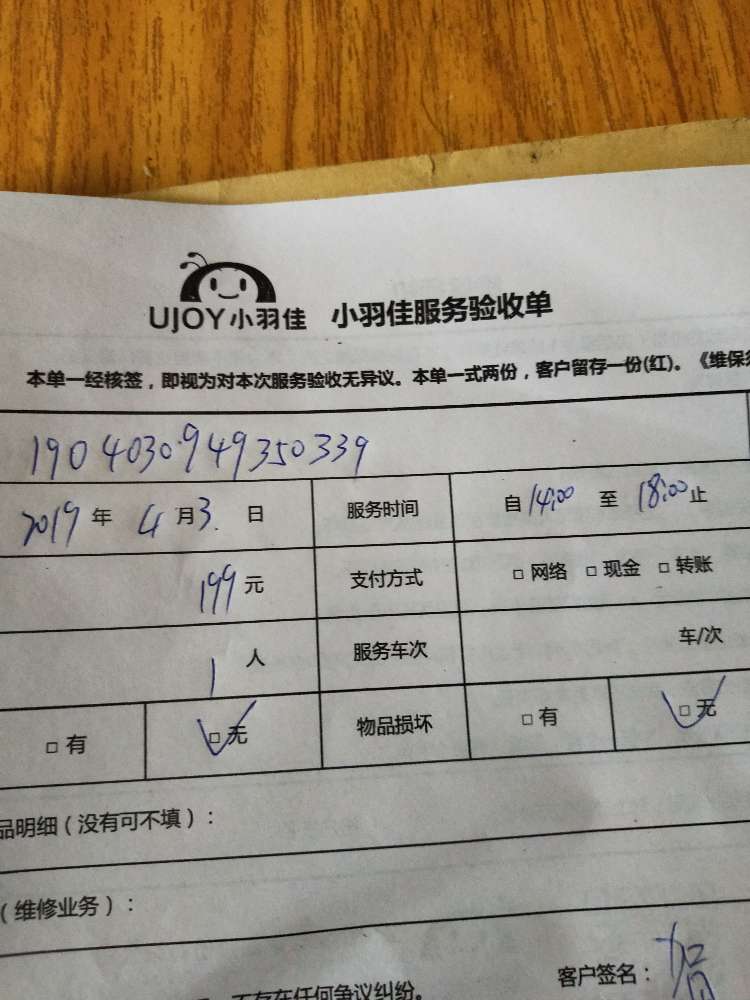 UJOY小羽佳 小羽佳服务验收单
本单一经核签，即视为对本次服务验收无异议。本单一式两份，客户留存一份(红)。《维保
190403094935​0339
2019年 4月3日 服务时间 自14:00至18:00止
199元 支付方式 □网络 □现金 □转账
1人 服务车次 车/次
□有 □无 物品损坏 □有 □无
品明细（没有可不填）：
（维修业务）：
不存在任何争议纠纷。
客户签名：